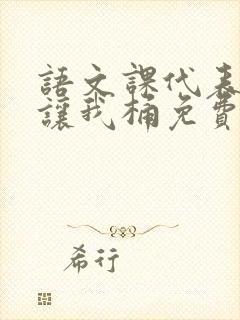 語文課代表
讓我桶免費
希行